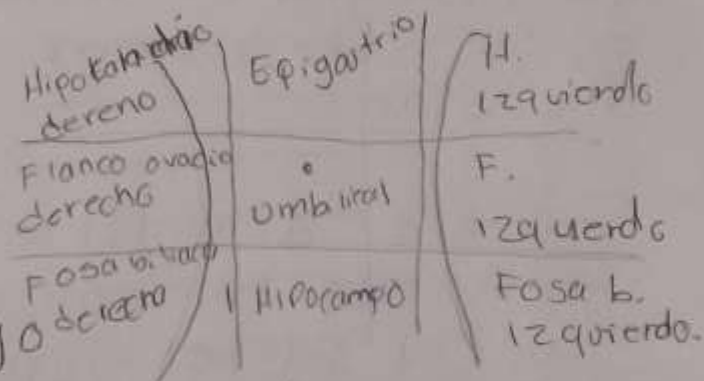 Hipokondrio
dereno
Epigastrio
H.
izquierdo
Flanco
derecho
umbilical
F.
izquerdo
Fosa
derecho
Hipocampo
Fosa b.
izquierdo.